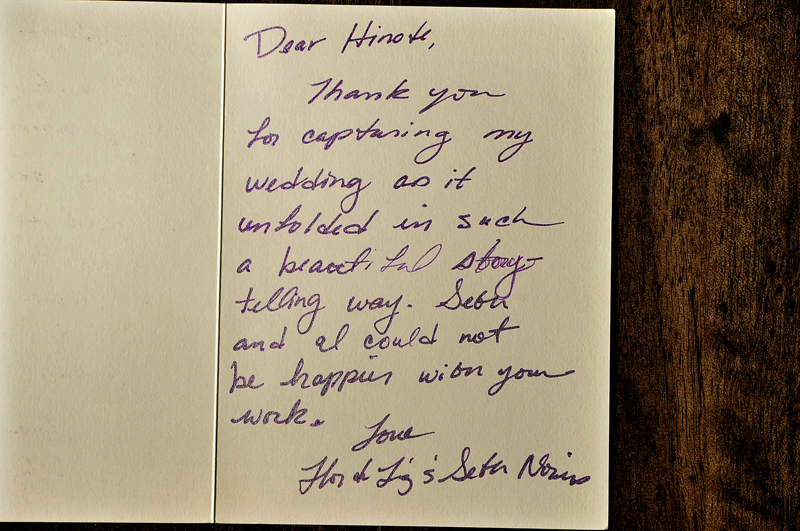 Dear Hinote,
Thank you
for capturing my
wedding as it
unfolded in such
a beautiful story-
telling way. Seth
and I could not
be happier with your
work.
Love
Seth